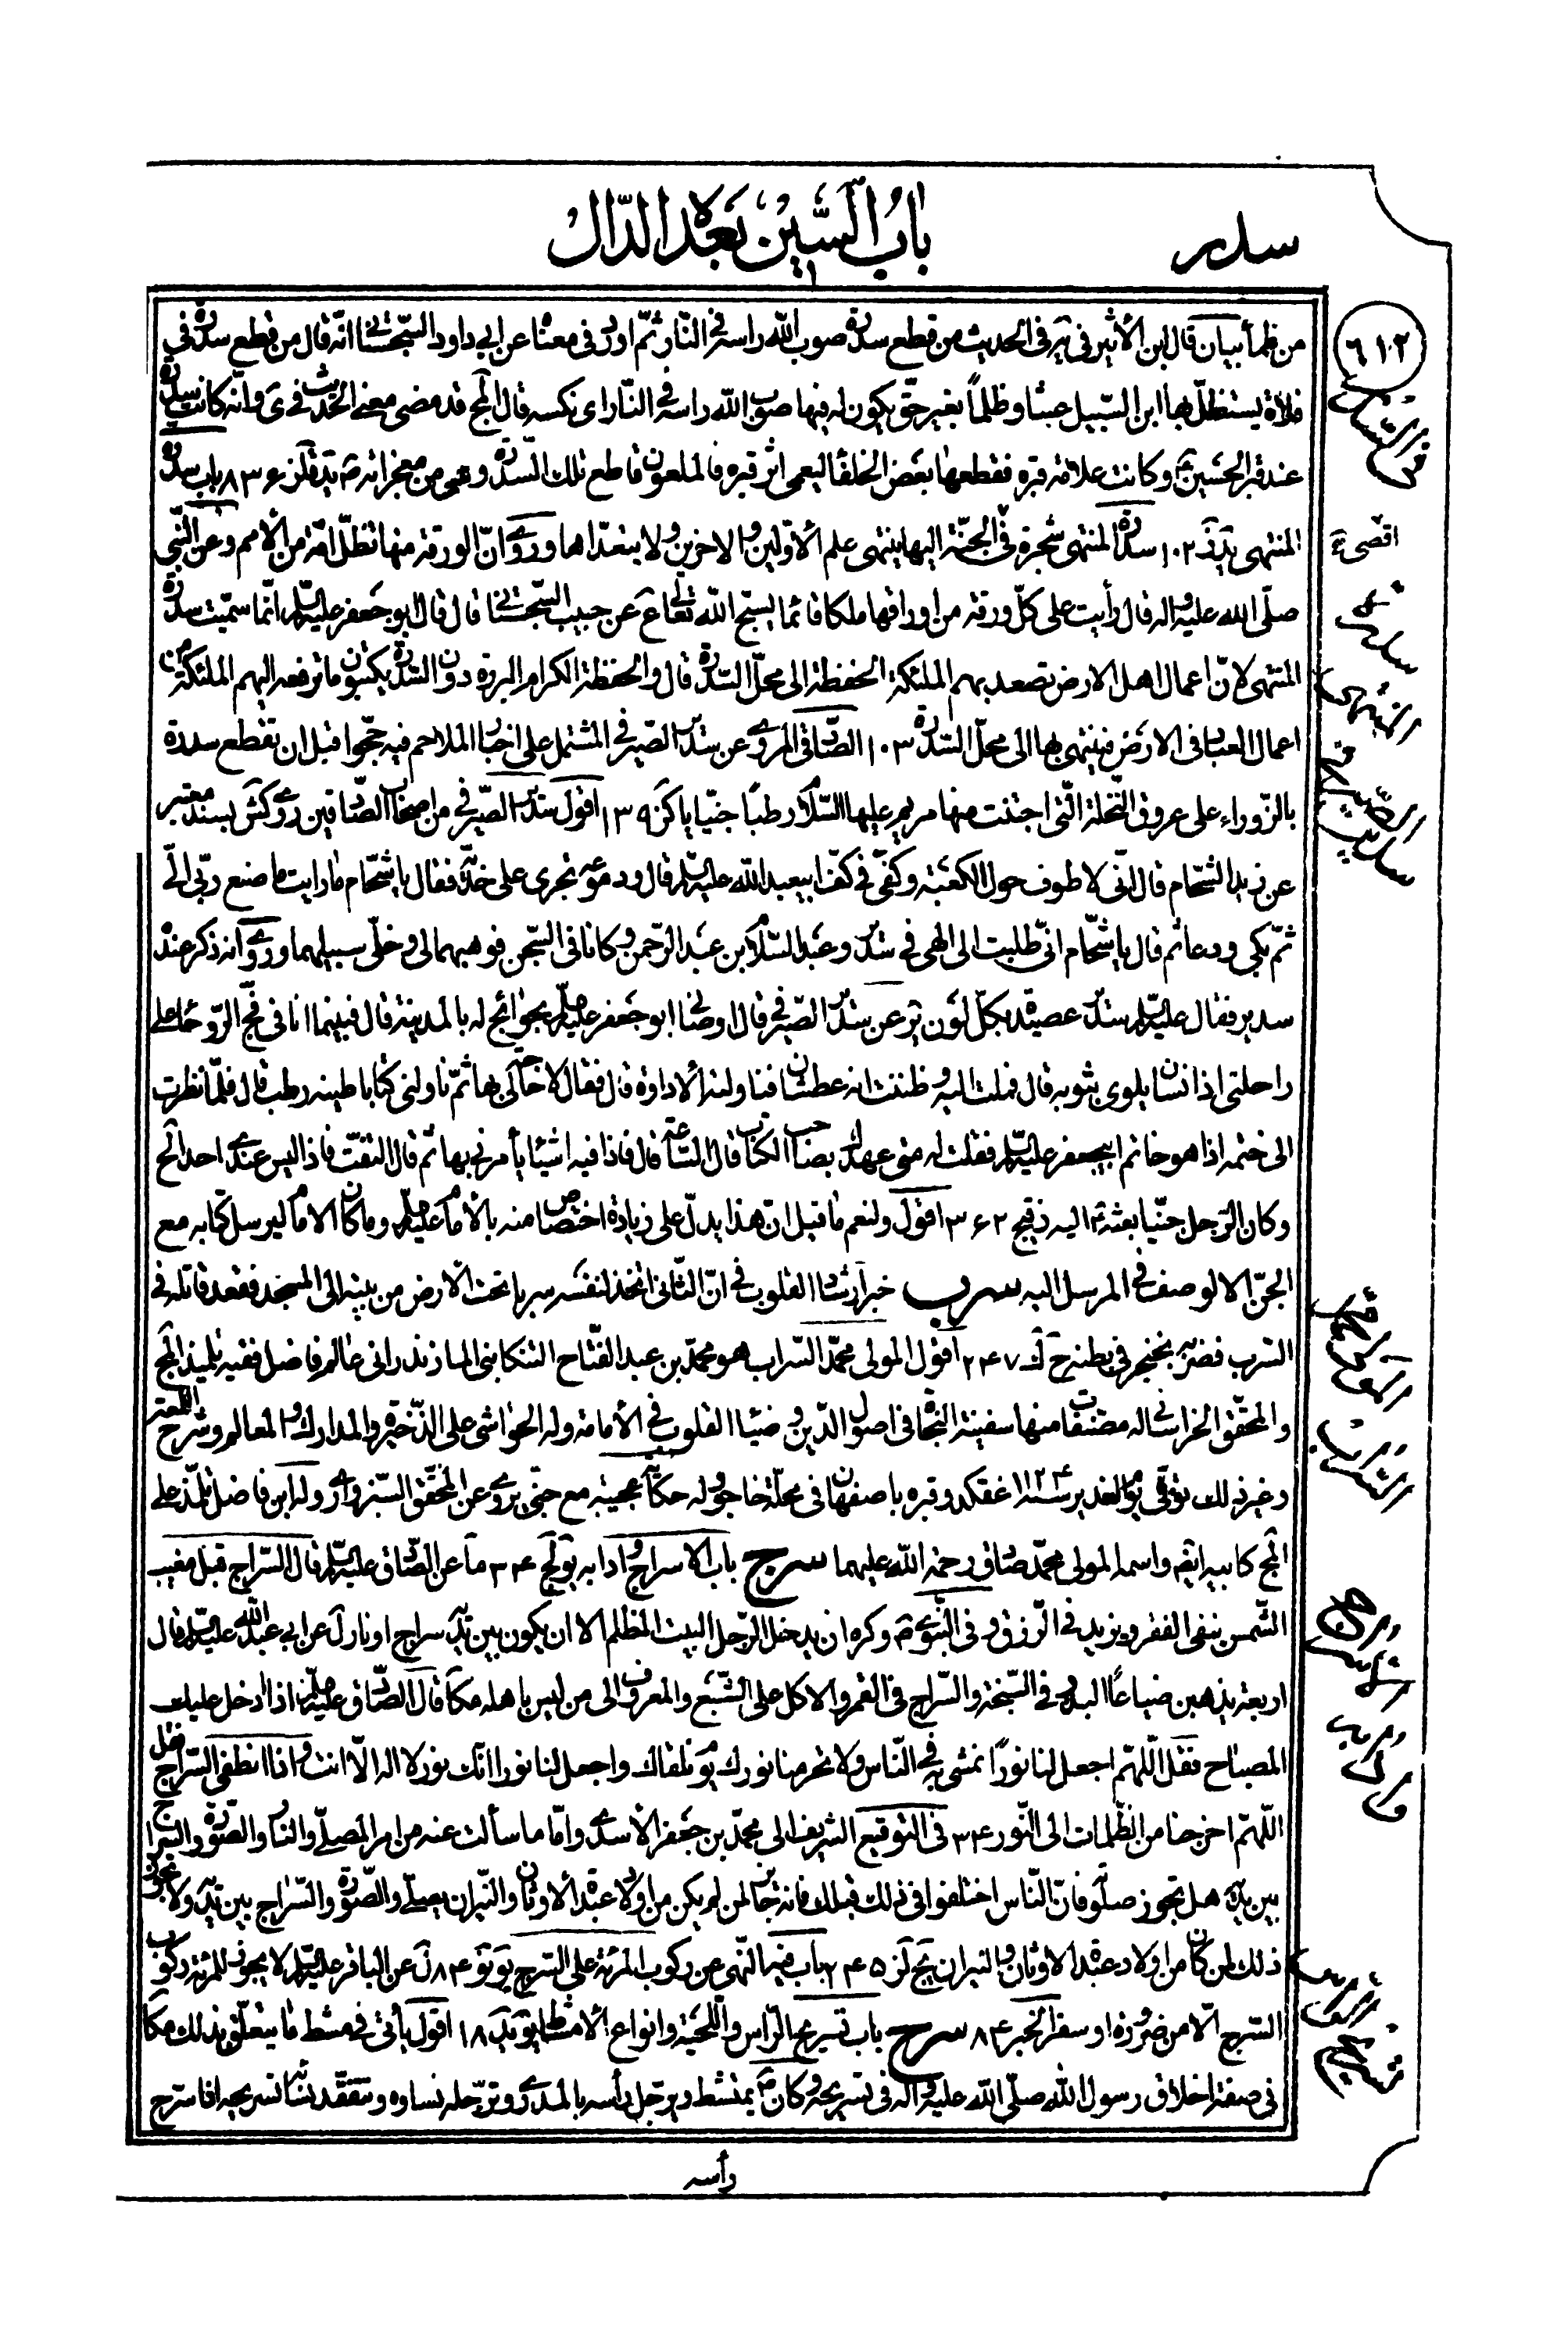 سدر
باب السين بعده الدال
٦١٢
من ظمأ بيان قال ابن الأثير في ية في الحديث من قطع سدرة صوب الله راسه في النار ثم اورد في معناه عن ابي داود السجستاني انه قال من قطع سدرة في
فلاة يستظل بها ابن السبيل عبثا وظلماً بغير حق يكون له فيها صوب الله راسه في النار اى نكسه قال المج قد مضى معنى الحديث في ى وانه كانت سدرة
عند قبر الحسين وكانت علامة قبره فقطعها بعض الخلفاء ليعمى اثر قبره فالملعون قاطع تلك السدرة وهى من معجزاته ٨٣٦ باب سدرة
المنتهى ١٠٢ سدرة المنتهى شجرة في الجنة اليها ينتهى علم الأولين والاخرين ولا يتعداها وروى ان الورقة منها تظل امة من الأمم وعن النبي
صلى الله عليه واله قال رأيت على كل ورقة من اوراقها ملكا قائما يسبح الله تعالى ع عن حبيب السجستاني قال قال ابو جعفر عليه السلام انما سميت سدرة
المنتهى لان اعمال اهل الارض تصعد بهم الملئكة الحفظة الى محل السدرة قال والحفظة الكرام البررة دون السدرة يكتبون ما ترفعه اليهم الملئكة من
اعمال العباد في الارض فينتهى بها الى محل السدرة ١٠٣ الصادقى المروى عن سدير الصيرفي المشتمل على اخبار الملاحم فيه حجوا قبل ان تقطع سدرة
بالزوراء على عروق النخلة التى اجتنت منها مريم عليها السلام رطبا جنيا ١٣٩ اقول سدير الصيرفي من اصحاب الصادقين روى كش بسند معتبر
عن زيد الشحام قال انى لاطوف حول الكعبة وكفى في كف ابيعبد الله عليه السلام قال ودموعه تجرى على خديه فقال يا شحام ما رايت ما صنع ربى الى
ثم بكى ودعا ثم قال يا شحام انى طلبت الى الهى في سدير وعبد السلام بن عبد الرحمن وكانا في السجن فوهبهما لى وخلى سبيلهما وروى انه ذكر عنده
سدير فقال عليه السلام سدير عصيدة بكل لون ير عن سدير الصيرفي قال اوصانى ابو جعفر عليه السلام بحوائج له بالمدينة قال فبينما انا في فج الروحاء على
راحلتى اذا انسان يلوى بثوبه قال فملت اليه وظننت انه عطشان فناولته الاداوة قال فقال لا حاجة لى بها ثم ناولنى كتابا طينه رطب قال فلما نظرت
الى ختمه اذا هو خاتم ابيجعفر عليه السلام فقلت له متى عهدك بصاحب الكتاب قال الساعة قال فاذا فيه اشياء يأمرنى بها ثم قال التفت فاذا ليس عندى احد الخ
وكان الرجل جنيا بعثه اليه ٣٦٢ اقول ولنعم ما قيل ان هذا يدل على زيادة اختصاص منه بالأمام عليه السلام وما كان الامام ليرسل كتابه مع
الجن الا لوصف في المرسل اليه سرب خبر ارشاد القلوب في ان الثانى اتخذ لنفسه سربا تحت الارض من بيته الى المسجد فقعد قاتله في
السرب فضربه بخنجر في بطنه ٢٤٧ اقول المولى محمد السراب هو محمد بن عبد الفتاح التنكابنى المازندرانى عالم فاضل فقيه تلميذ المج
والمحقق الخراسانى له مصنفات منها سفينة النجاة في اصول الدين وضياء القلوب في الأمامة وله الحواشى على الذخيرة والمدارك والمعالم وشرح اللمعة
وغير ذلك توفى يوم الغدير سنة ١١٢٤ غقكد وقبره باصفهان في محلة خاجو وله حكاية عجيبة مع جنى يروى عن المحقق السبزوارى وله ابن فاضل تلمذ على
المج كابيه ايضم واسمه المولى محمد صادق رحمة الله عليهما سرج باب الاسراج وادابه ٣٤ ما عن الصادق عليه السلام قال السراج قبل مغيب
الشمس ينفى الفقر ويزيد في الرزق وفي النبوى وكره ان يدخل الرجل البيت المظلم الا ان يكون بين يديه سراج او نار ل عن ابى عبد الله عليه السلام قال
اربعة يذهبن ضياعاً البذر في السبخة والسراج في القمر والاكل على الشبع والمعروف الى من ليس باهله مكا قال الصادق عليه السلام اذا ادخل عليك
المصباح فقل اللهم اجعل لنا نوراً نمشى به في الناس ولا تحرمنا نورك يوم نلقاك واجعل لنا نورا انك نور لا اله الا انت واذا انطفى السراج فقل
اللهم اخرجنا من الظلمات الى النور ٣٤ في التوقيع الشريف الى محمد بن جعفر الأسدى واما ما سألت عنه من امر المصلى والنار والصورة والسراج
بين يديه هل تجوز صلوته فان الناس اختلفوا في ذلك قبلك فانه جائز لمن لم يكن من اولاد عبدة الاوثان والنيران يصلى والصورة والسراج بين يديه ولا يجوز
ذلك لمن كان من اولاد عبدة الاوثان والنيران ٢٤٥ باب فيه النهى عن ركوب المرئة على السرج ٨٤ ل عن الباقر عليه السلام لا يجوز للمرئة ركوب
السرج الا من ضرورة او سفر الخبر ٨٤ سرح باب تسريح الراس واللحية وانواع الامشاط ١٨ اقول يأتى في مشط ما يتعلق بذلك مكا
في صفة اخلاق رسول الله صلى الله عليه واله في تسريحه وكان يمتشط ويرجل رأسه بالمدرى وترجله نساوه وتتفقد نساءه تسريحه اذا سرح
رأسه